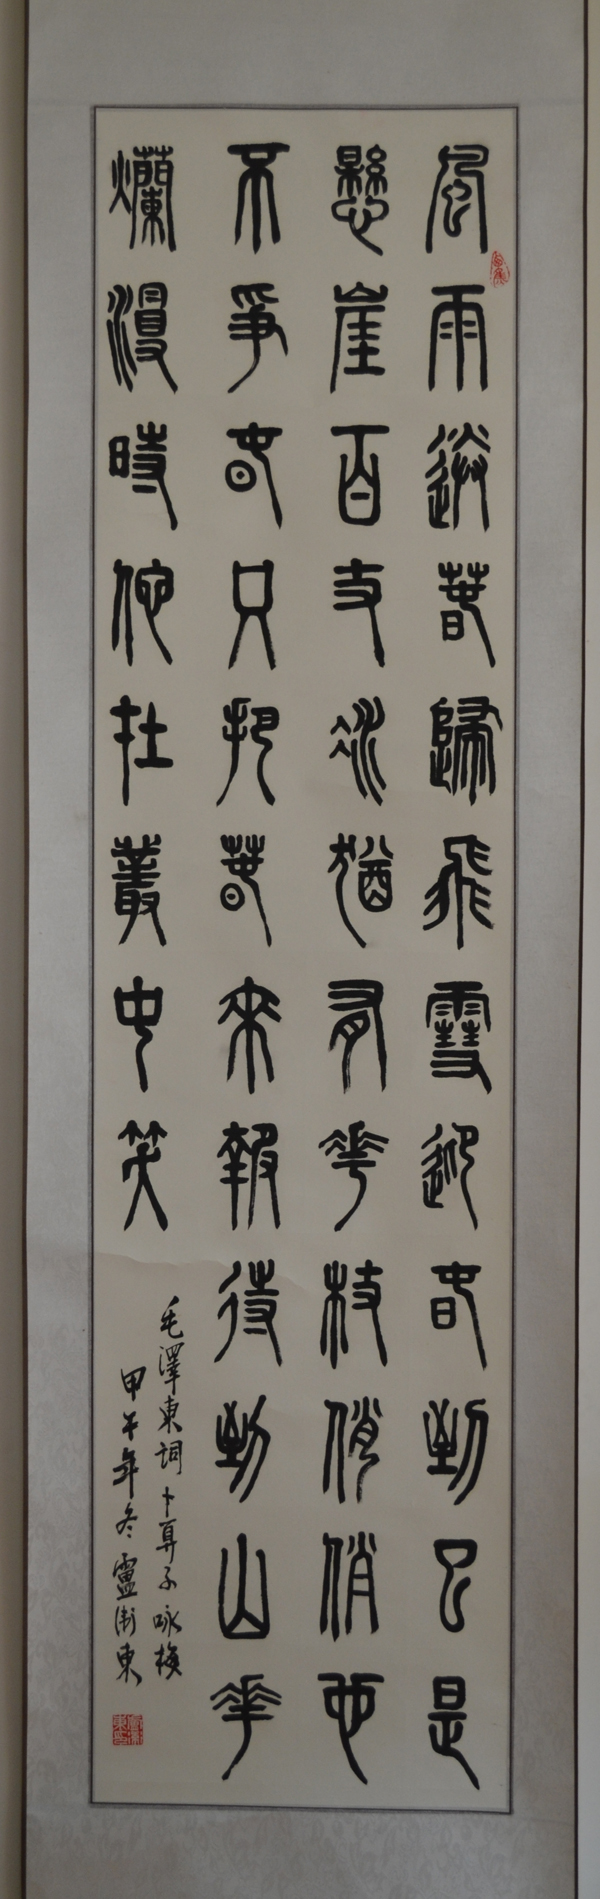 風雨送春歸飛雪迎春到已是
懸崖百丈冰猶有花枝俏俏也
不爭春只把春來報待到山花
爛漫時他在叢中笑
毛澤東詞卜算子咏梅
甲午年冬盧衛東